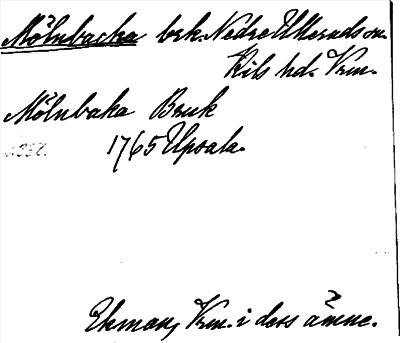 Mölnbacka brk. Nedre Ulleruds sn.
Kils hd. Vrm.
Mölnbaka Bruk
1765 Upsala.
Ekman, Vrm. i dess ämne.